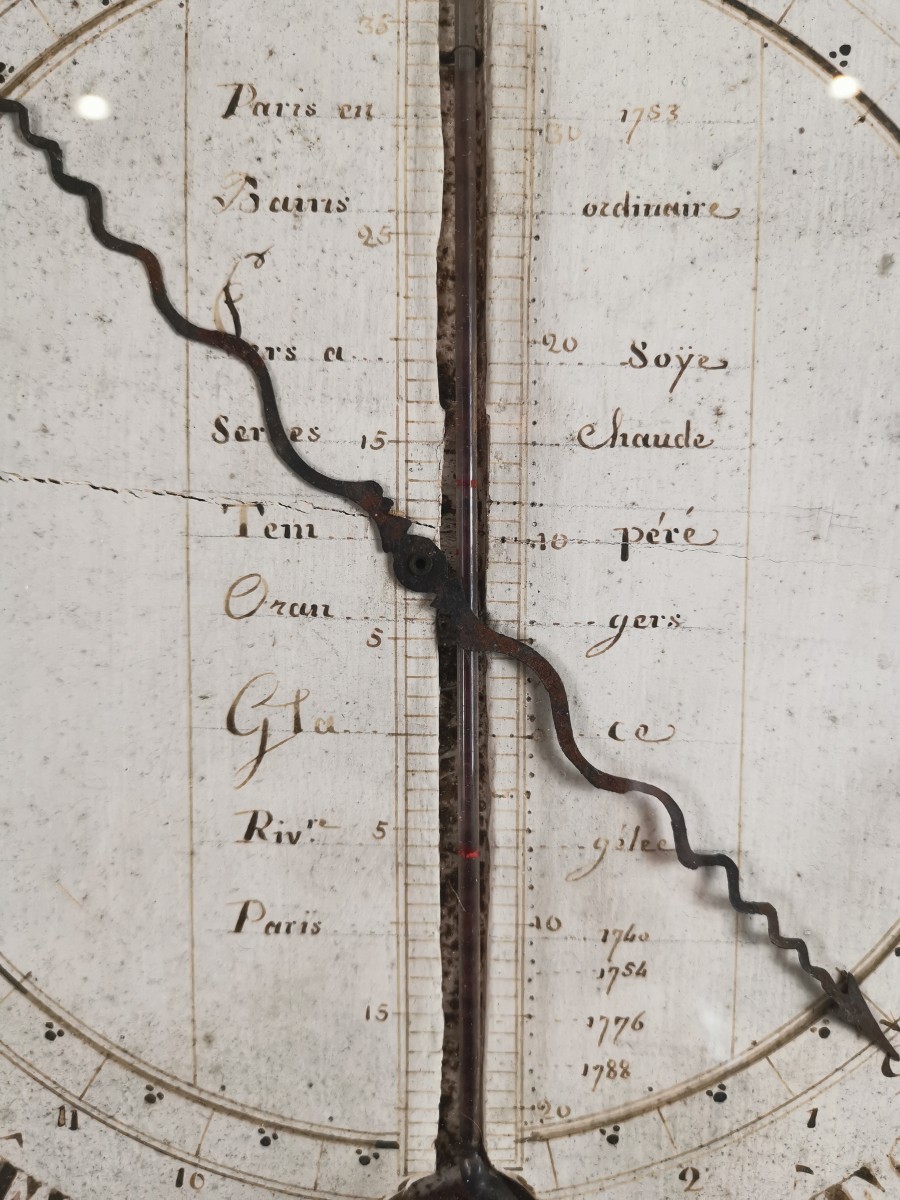 35
Paris en 30 1753
Bains ordinaire
25
Vers a 20 Soÿe
Serres 15 Chaude
Tem 10 péré
Oran gers
5
Gla ce
Rivre 5 gélée
Paris 10 1740
1754
15 1776
1788
20
11 1
10 2